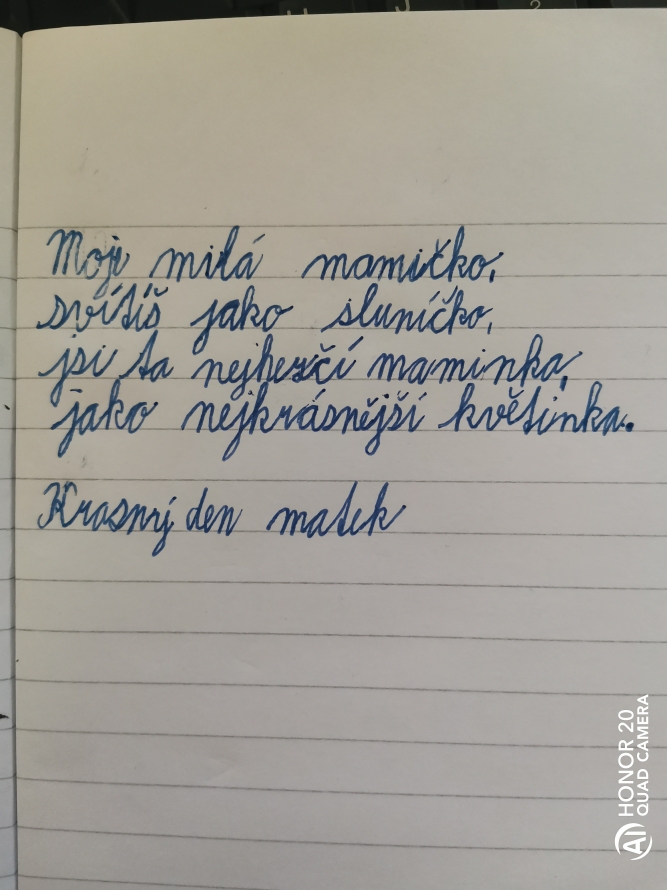 Moji milá mamičko,
svítíš jako sluníčko,
jsi ta nejhezčí maminka,
jako nejkrásnější květinka.
Krasný den matek
HONOR 20
AI QUAD CAMERA